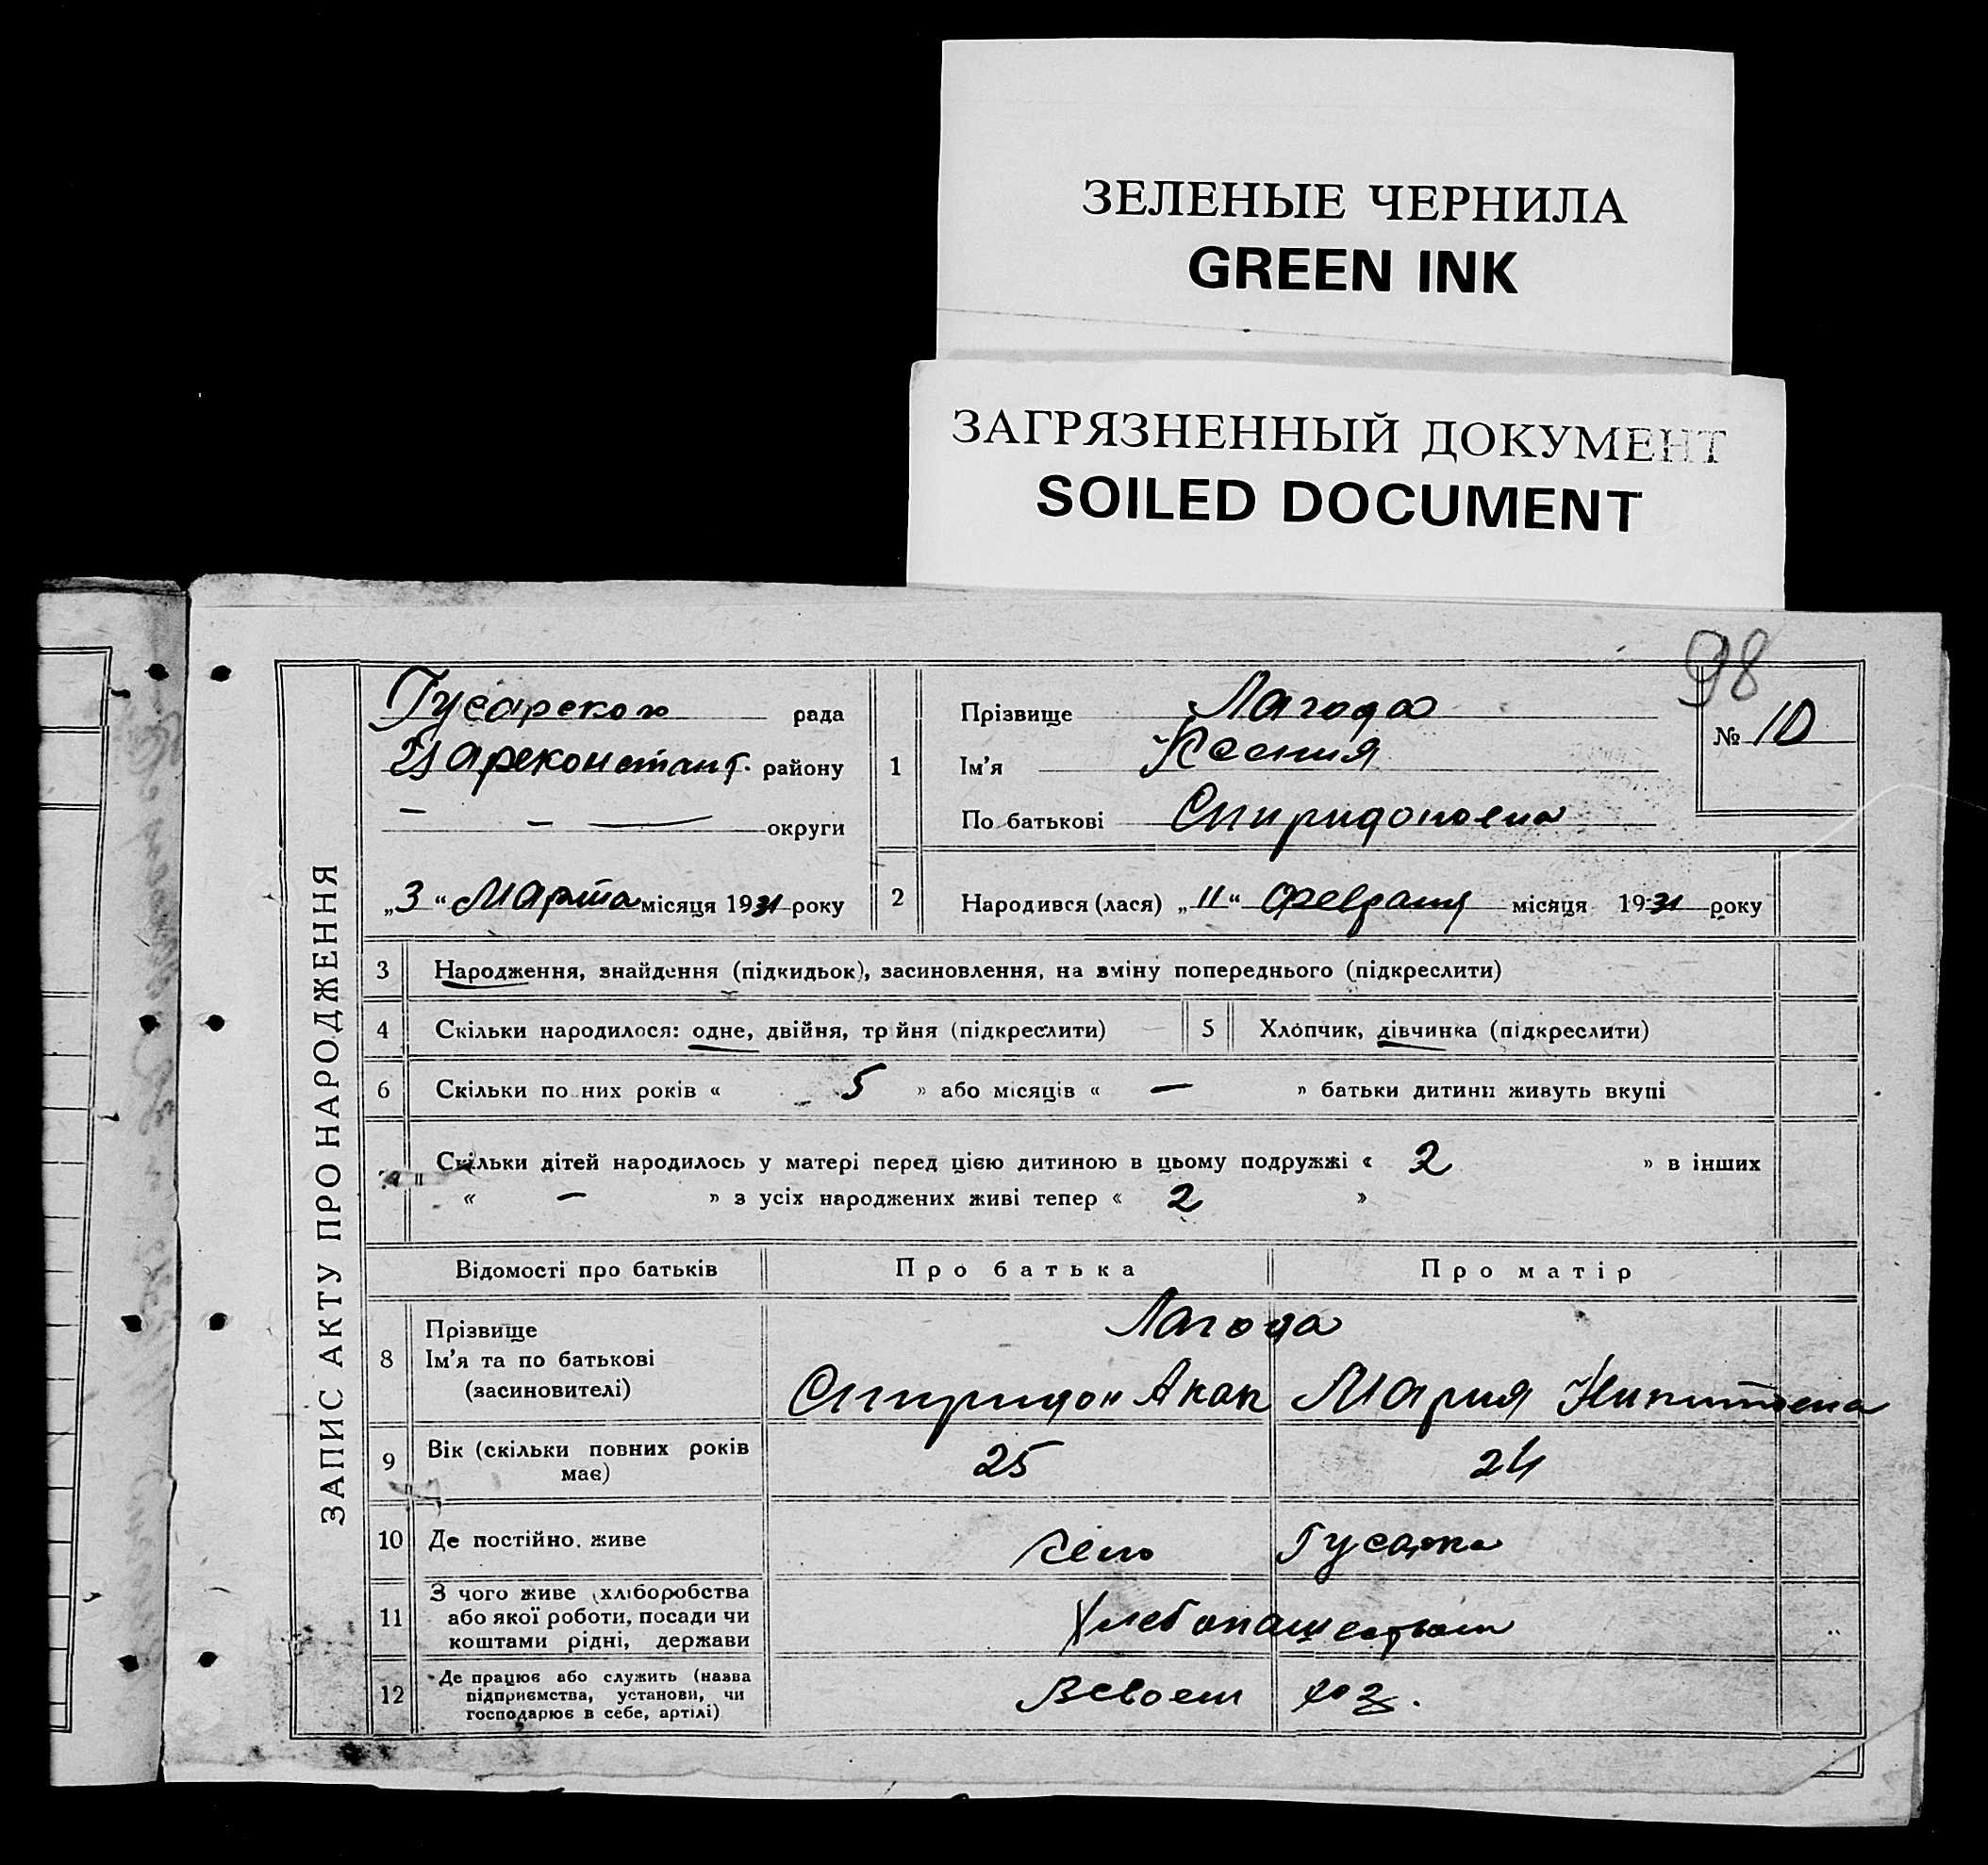 ЗЕЛЕНЫЕ ЧЕРНИЛА
GREEN INK
ЗАГРЯЗНЕННЫЙ ДОКУМЕНТ
SOILED DOCUMENT
98
ЗАПИС АКТУ ПРО НАРОДЖЕННЯ
Гусарскою рада
Цареконстант. району
— — — округи
„3“ Марта місяця 1931 року
1
Прізвище Лагода
Ім’я Ксения
По батькові Спиридоновна
№ 10
2 Народився (лася) „11“ Февраля місяця 1931 року
3 Народження, знайдення (підкидьок), засиновлення, на зміну попереднього (підкреслити)
4 Скільки народилося: одне, двійня, тр йня (підкреслити) 5 Хлопчик, дівчинка (підкреслити)
6 Скільки по них років « 5 » або місяців « — » батьки дитини живуть вкупі
Скільки дітей народилось у матері перед цією дитиною в цьому подружжі « 2 » в інших
« — » з усіх народжених живі тепер « 2 »
Відомості про батьків Про батька Про матір
8 Прізвище Лагода
Ім’я та по батькові
(засиновителі) Спиридон Акак Мария Никитовна
9 Вік (скільки повних років має) 25 24
10 Де постійно живе село Гусарка
11 З чого живе (хліборобства
або якої роботи, посади чи
коштами рідні, держави
Хлебопашеством
12 Де працює або служить (назва
підприємства, установи, чи
господарює в себе, артілі)
Всвоем хоз.